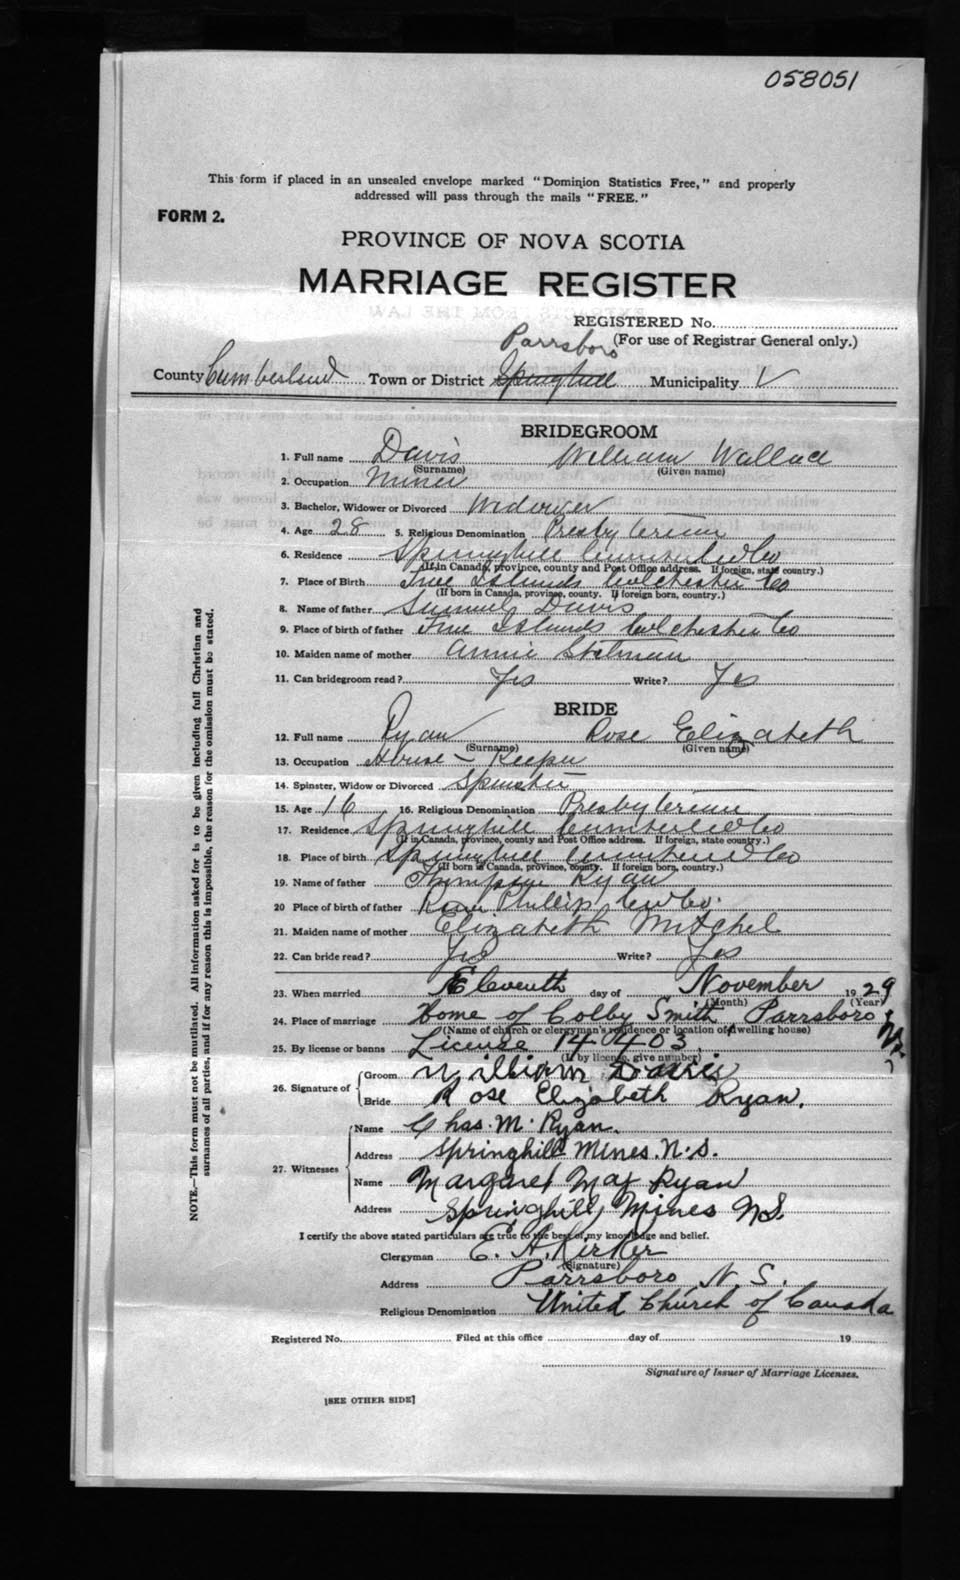 058051
This form if placed in an unsealed envelope marked "Dominion Statistics Free," and properly
addressed will pass through the mails "FREE."
FORM 2.
PROVINCE OF NOVA SCOTIA
MARRIAGE REGISTER
REGISTERED No.
(For use of Registrar General only.)
Parrsboro
County Cumberland Town or District Springhill Municipality
BRIDEGROOM
1. Full name Davis William Wallace
(Surname) (Given name)
2. Occupation Miner
3. Bachelor, Widower or Divorced Widower
4. Age 28 5. Religious Denomination Presbyterian
6. Residence Springhill Cumberland Co
(If in Canada, province, county and Post Office address. If foreign, state country.)
7. Place of Birth Five Islands Colchester Co
(If born in Canada, province, county. If foreign born, country.)
8. Name of father Samuel Davis
9. Place of birth of father Five Islands Colchester Co
10. Maiden name of mother Annie
11. Can bridegroom read? Yes Write? Yes
BRIDE
12. Full name Ryan Rose Elizabeth
(Surname) (Given name)
13. Occupation House-Keeper
14. Spinster, Widow or Divorced Spinster
15. Age 16 16. Religious Denomination Presbyterian
17. Residence Springhill Cumberland Co
(If in Canada, province, county and Post Office address. If foreign, state country.)
18. Place of birth Springhill Cumberland Co
(If born in Canada, province, county. If foreign born, country.)
19. Name of father Thompson Ryan
20 Place of birth of father River Phillip Cum Co.
21. Maiden name of mother Elizabeth Mitchel
22. Can bride read? Yes Write? Yes
23. When married Eleventh day of November 1929
(Month) (Year)
24. Place of marriage Home of Colby Smith, Parrsboro, N.S.
(Name of church or clergyman's residence or location of dwelling house)
25. By license or banns License 14403
(If by license, give number)
26. Signature of Groom William Davis
Bride Rose Elizabeth Ryan.
27. Witnesses
Name Chas. M. Ryan.
Address Springhill Mines. N.S.
Name Margaret May Ryan
Address Springhill Mines N.S.
I certify the above stated particulars are true to the best of my knowledge and belief.
Clergyman E. A. Kirker
(Signature)
Address Parrsboro N. S.
Religious Denomination United Church of Canada
Registered No. Filed at this office day of 19
Signature of Issuer of Marriage Licenses.
[SEE OTHER SIDE]
NOTE.—This form must not be mutilated. All information asked for is to be given including full Christian and
surnames of all parties, and if for any reason this is impossible, the reason for the omission must be stated.